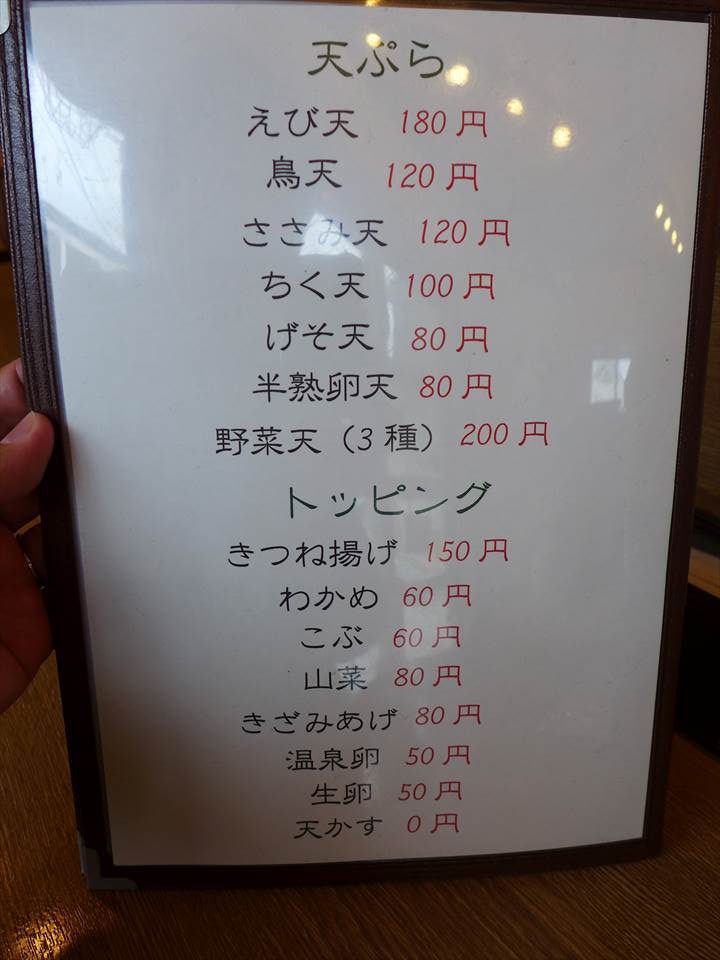 天ぷら
えび天 180円
鳥天 120円
ささみ天 120円
ちく天 100円
げそ天 80円
半熟卵天 80円
野菜天（3種） 200円
トッピング
きつね揚げ 150円
わかめ 60円
こぶ 60円
山菜 80円
きざみあげ 80円
温泉卵 50円
生卵 50円
天かす 0円